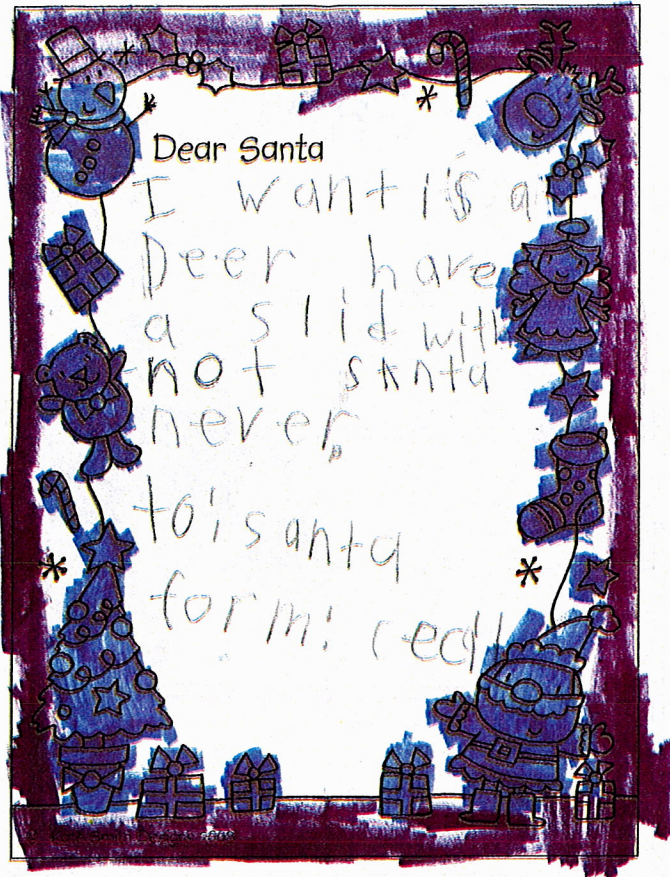 Dear Santa
I want i's a
Deer have
a slid with
not santa
never.
to: santa
form: cecil